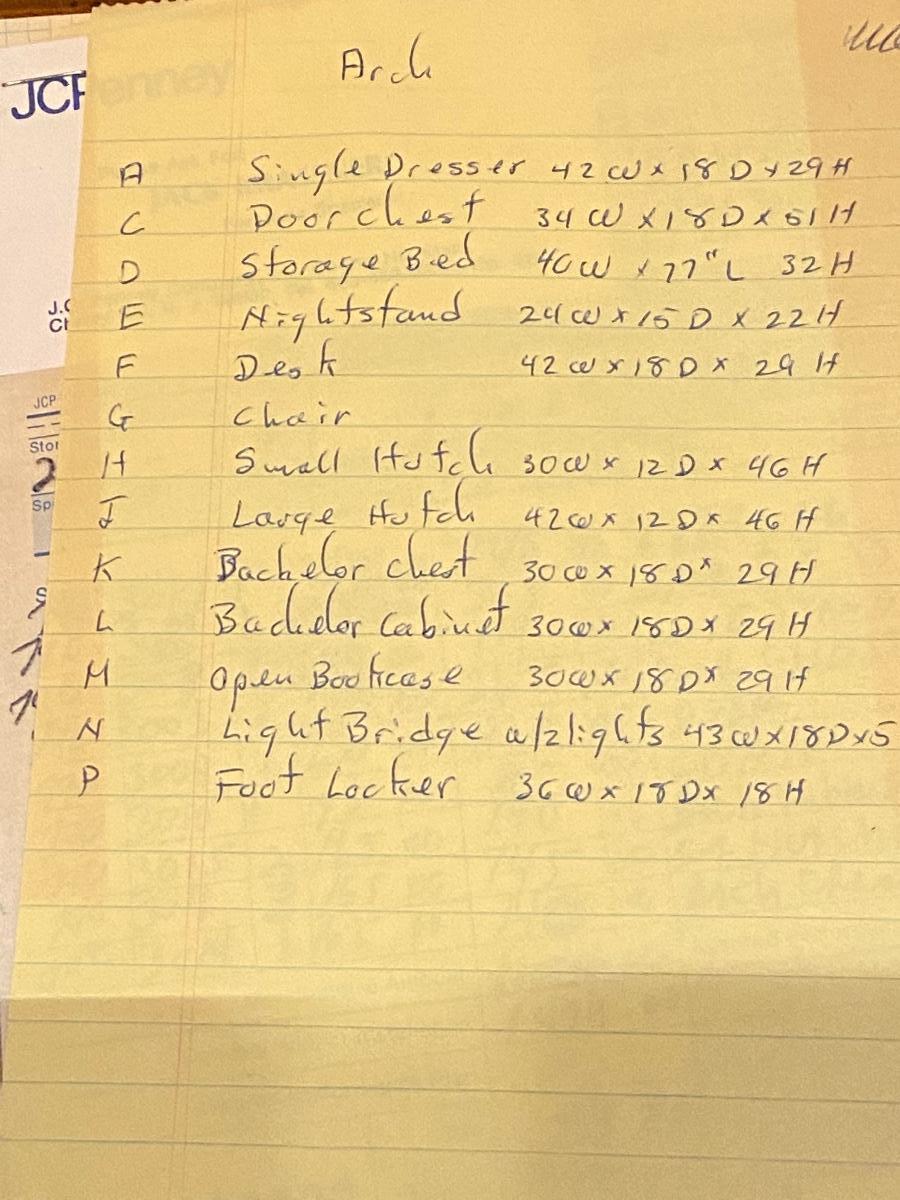 Arch
JCPenney
A Single Dresser 42W x 18D x 29H
C Door Chest 34W x 18D x 51H
D Storage Bed 40W x 77"L 32H
E Nightstand 24W x 15D x 22H
J.C
Ch
F Desk 42W x 18D x 29H
JCP
G Chair
Stor
H Small Hutch 30W x 12D x 46H
2
Sp
J Large Hutch 42W x 12D x 46H
K Bachelor Chest 30W x 18D x 29H
S
L Bachelor Cabinet 30W x 18D x 29H
M Open Bookcase 30W x 18D x 29H
N Light Bridge w/2lights 43W x 18D x 5
P Foot Locker 36W x 18D x 18H